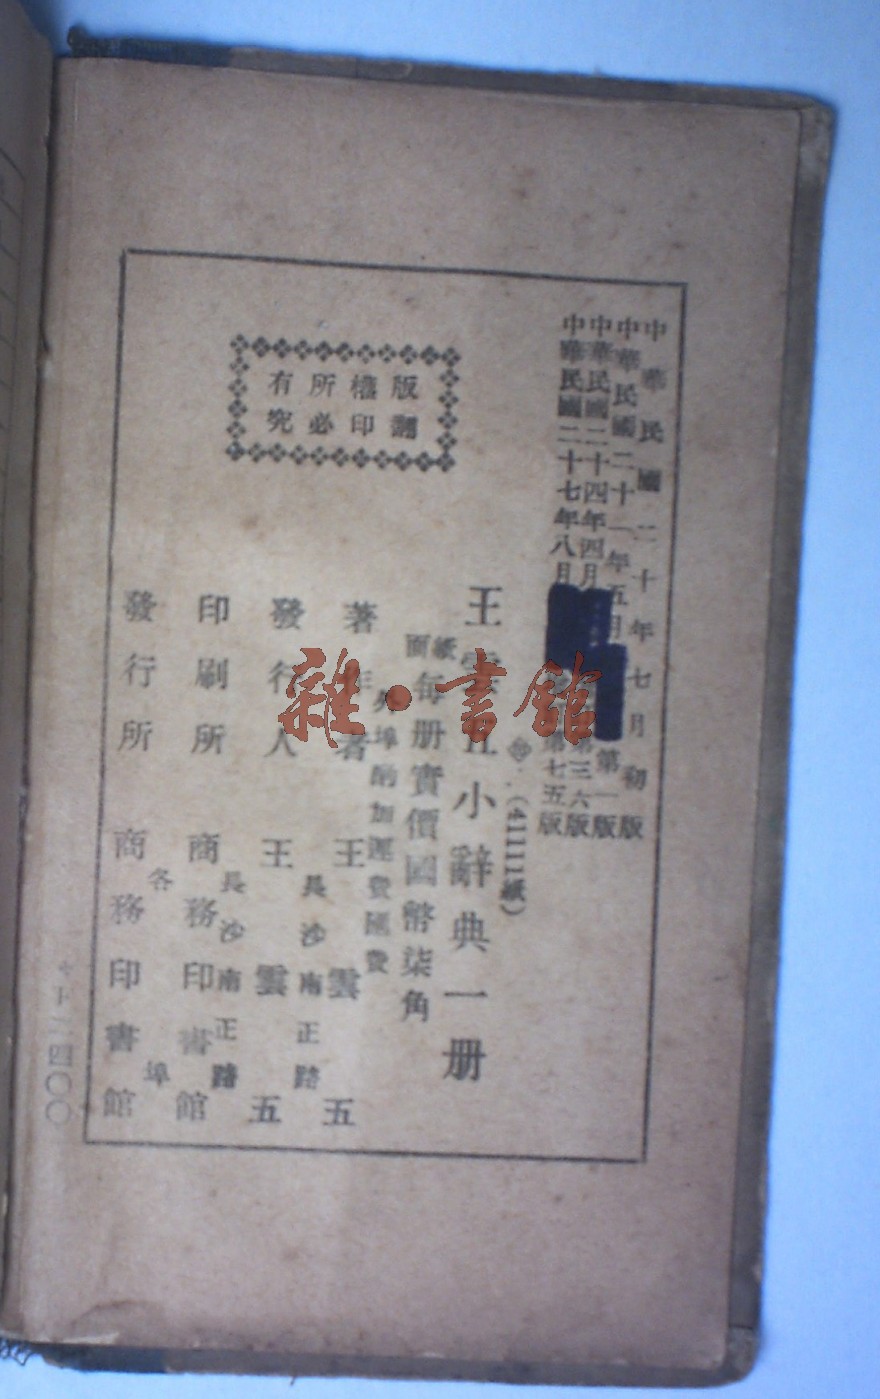 中華民國二十年七月初版
中華民國二十一年五月 第一版
中華民國二十四年四月 第三六版
中華民國二十七年八月 第七五版
(41111紙)
王雲五小辭典一册
紙面
每册實價國幣柒角
外埠酌加運費匯費
著作者 王雲五
長沙南正路
發行人 王雲五
長沙南正路
印刷所 商務印書館
各埠
發行所 商務印書館
版權所有
翻印必究
雜·書館